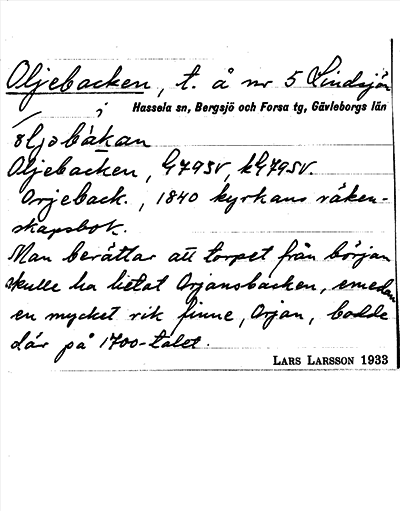 Oljebacken, t. å nr 5 Lindsjön
Hassela sn, Bergsjö och Forsa tg, Gävleborgs län
ȯljobàkan
Oljebacken, G79SV, kG79SV.
Orjeback., 1840 kyrkans räken-
skapsbok.
Man berättar att torpet från början
skulle ha hetat Orjansbacken, emedan
en mycket rik finne, Orjan, bodde
där på 1700-talet.
LARS LARSSON 1933